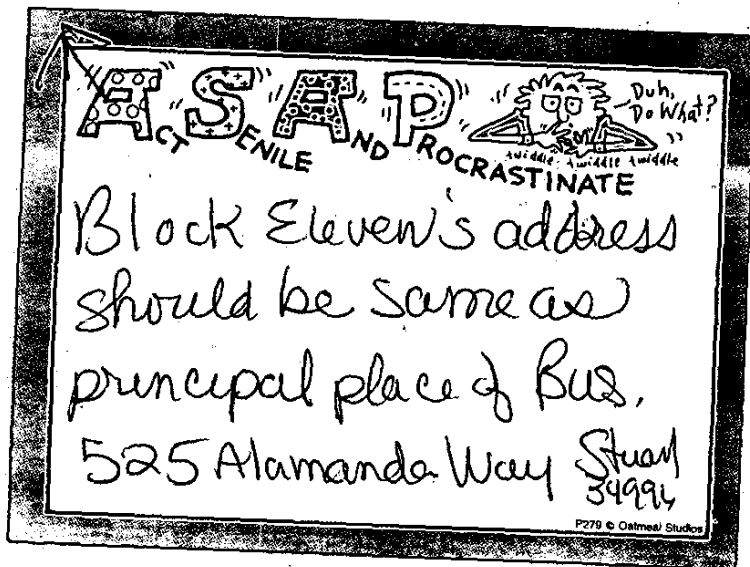 ASAP
ACT SENILE AND PROCRASTINATE
Duh,
Do What?
twiddle twiddle twiddle
Block Eleven's address
should be same as
principal place of Bus.
525 Alamanda Way Stuart
34996
P279 © Oatmeal Studios